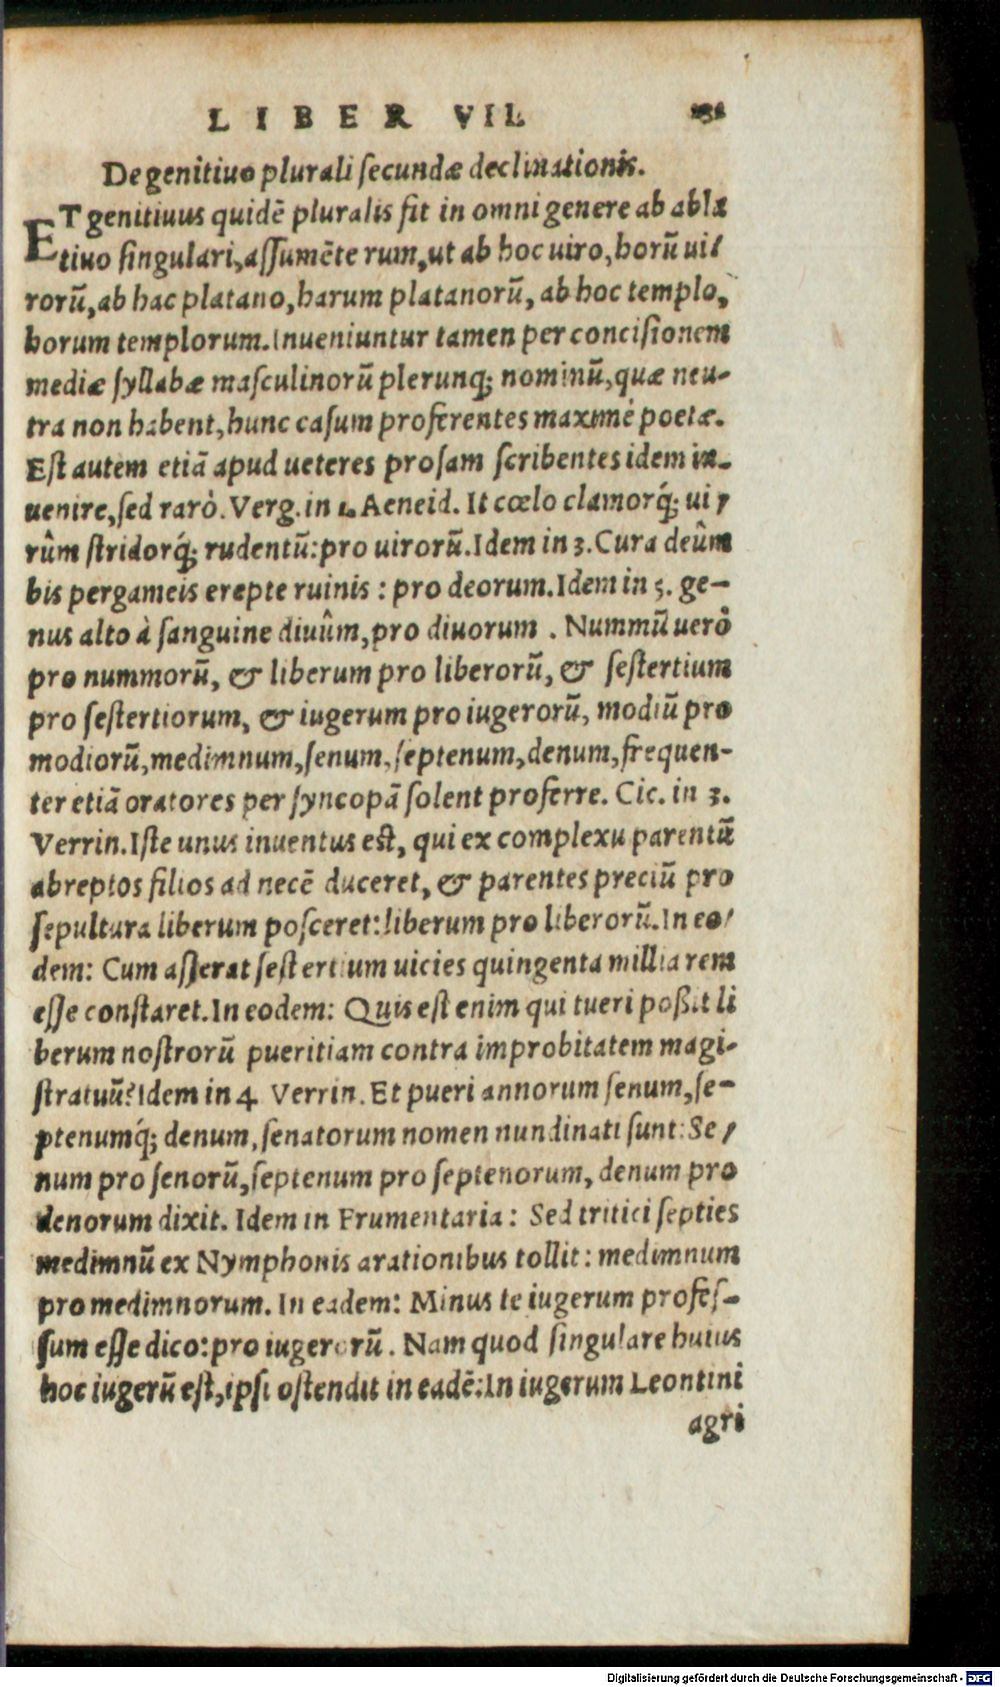 LIBER VII.
De genitiuo plurali ſecundæ declinationis.
ET genitiuus quidẽ pluralis fit in omni genere ab abla
tiuo ſingulari, aſſumẽte rum, ut ab hoc uiro, horũ ui/
rorũ, ab hac platano, harum platanorũ, ab hoc templo,
horum templorum. Inueniuntur tamen per conciſionem
mediæ ſyllabæ maſculinorũ plerunq; nominũ, quæ neu-
tra non habent, hunc caſum proferentes maximè poetæ.
Eſt autem etiã apud ueteres proſam ſcribentes idem in-
uenire, ſed rarò. Verg. in 1. Aeneid. It cœlo clamorq́; ui/
rûm ſtridorq́; rudentũ: pro uirorũ. Idem in 3. Cura deûm
bis pergameis erepte ruinis : pro deorum. Idem in 5. ge-
nus alto à ſanguine diuûm, pro diuorum . Nummũ uerò
pro nummorũ, & liberum pro liberorũ, & ſeſtertium
pro ſeſtertiorum, & iugerum pro iugerorũ, modiũ pro
modiorũ, medimnum, ſenum, ſeptenum, denum, frequen-
ter etiã oratores per ſyncopã ſolent proferre. Cic. in 3.
Verrin. Iſte unus inuentus eſt, qui ex complexu parentũ
abreptos filios ad necẽ duceret, & parentes preciũ pro
ſepultura liberum poſceret: liberum pro liberorũ. In eo/
dem: Cum aſſerat ſeſtertium uicies quingenta millia rem
eſſe conſtaret. In eodem: Quis eſt enim qui tueri poßit li
berum noſtrorũ pueritiam contra improbitatem magi-
ſtratuũ? Idem in 4 Verrin. Et pueri annorum ſenum, ſe-
ptenumq́; denum, ſenatorum nomen nundinati ſunt: Se/
num pro ſenorũ, ſeptenum pro ſeptenorum, denum pro
denorum dixit. Idem in Frumentaria : Sed tritici ſepties
medimnũ ex Nymphonis arationibus tollit : medimnum
pro medimnorum. In eadem: Minus te iugerum profeſ-
ſum eſſe dico: pro iugerorũ . Nam quod ſingulare huius
hoc iugerũ eſt, ipſi oſtendit in eadẽ: In iugerum Leontini
agri
Digitalisierung gefördert durch die Deutsche Forschungsgemeinschaft - DFG